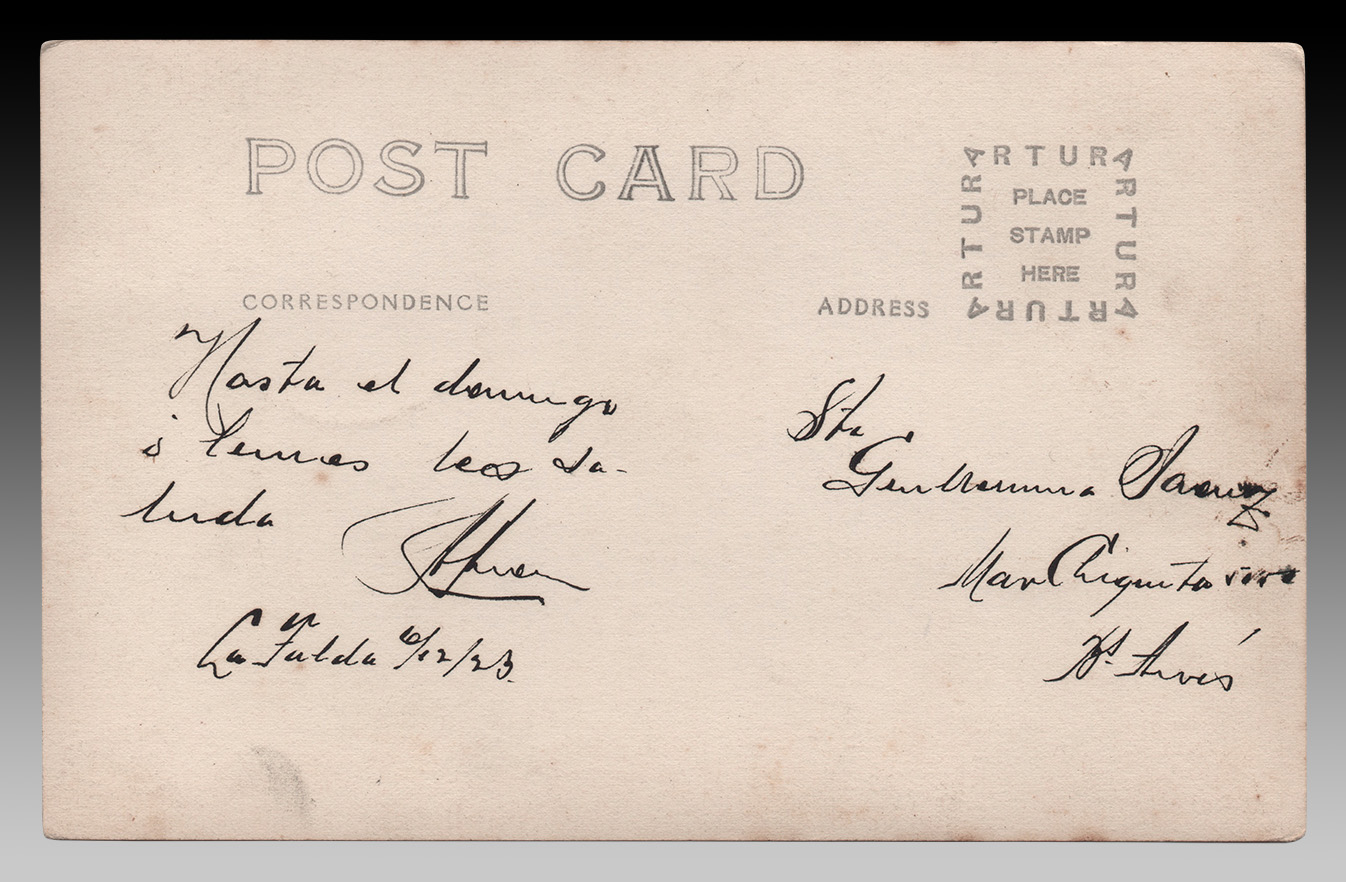 POST CARD
ARTURA
ARTURA
ARTURA
ARTURA
PLACE
STAMP
HERE
CORRESPONDENCE
ADDRESS
Hasta el domingo
sa-
luda
La Falda 6/12/23.
Sta
Guillermina Saenz
Mar Chiquita
Bs. Aires